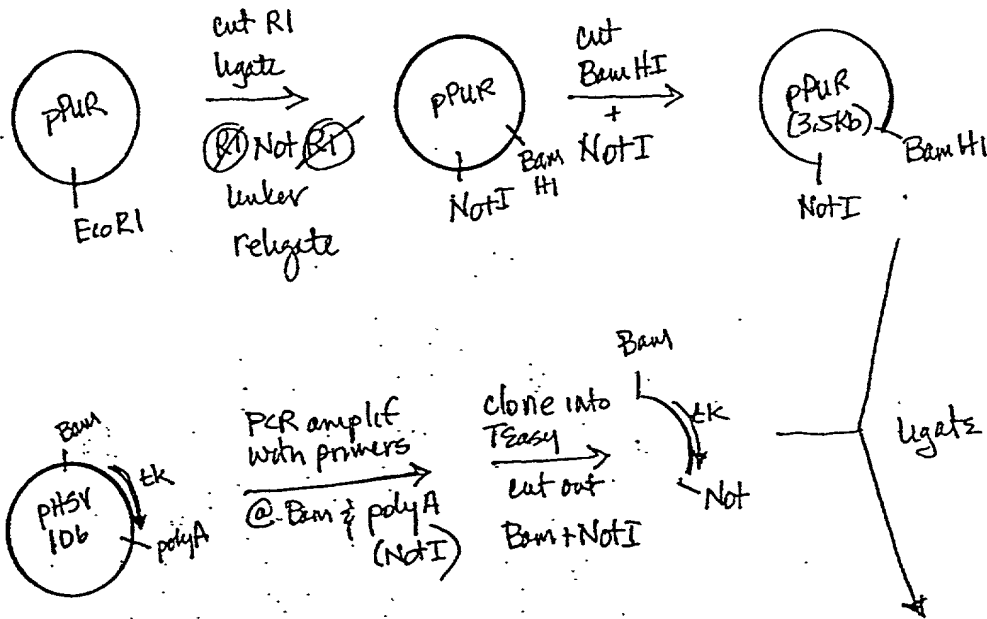 pPUR
EcoRI
cut RI
ligate
RI Not RI
linker
religate
pPUR
Bam
HI
NotI
cut
BamHI
+
NotI
pPUR
(3.5Kb)
BamHI
NotI
Bam
tk
pHSV
106
polyA
PCR amplif
with primers
@ Bam & polyA
(NotI)
clone into
TEasy
cut out
Bam + NotI
Bam
tk
Not
ligate